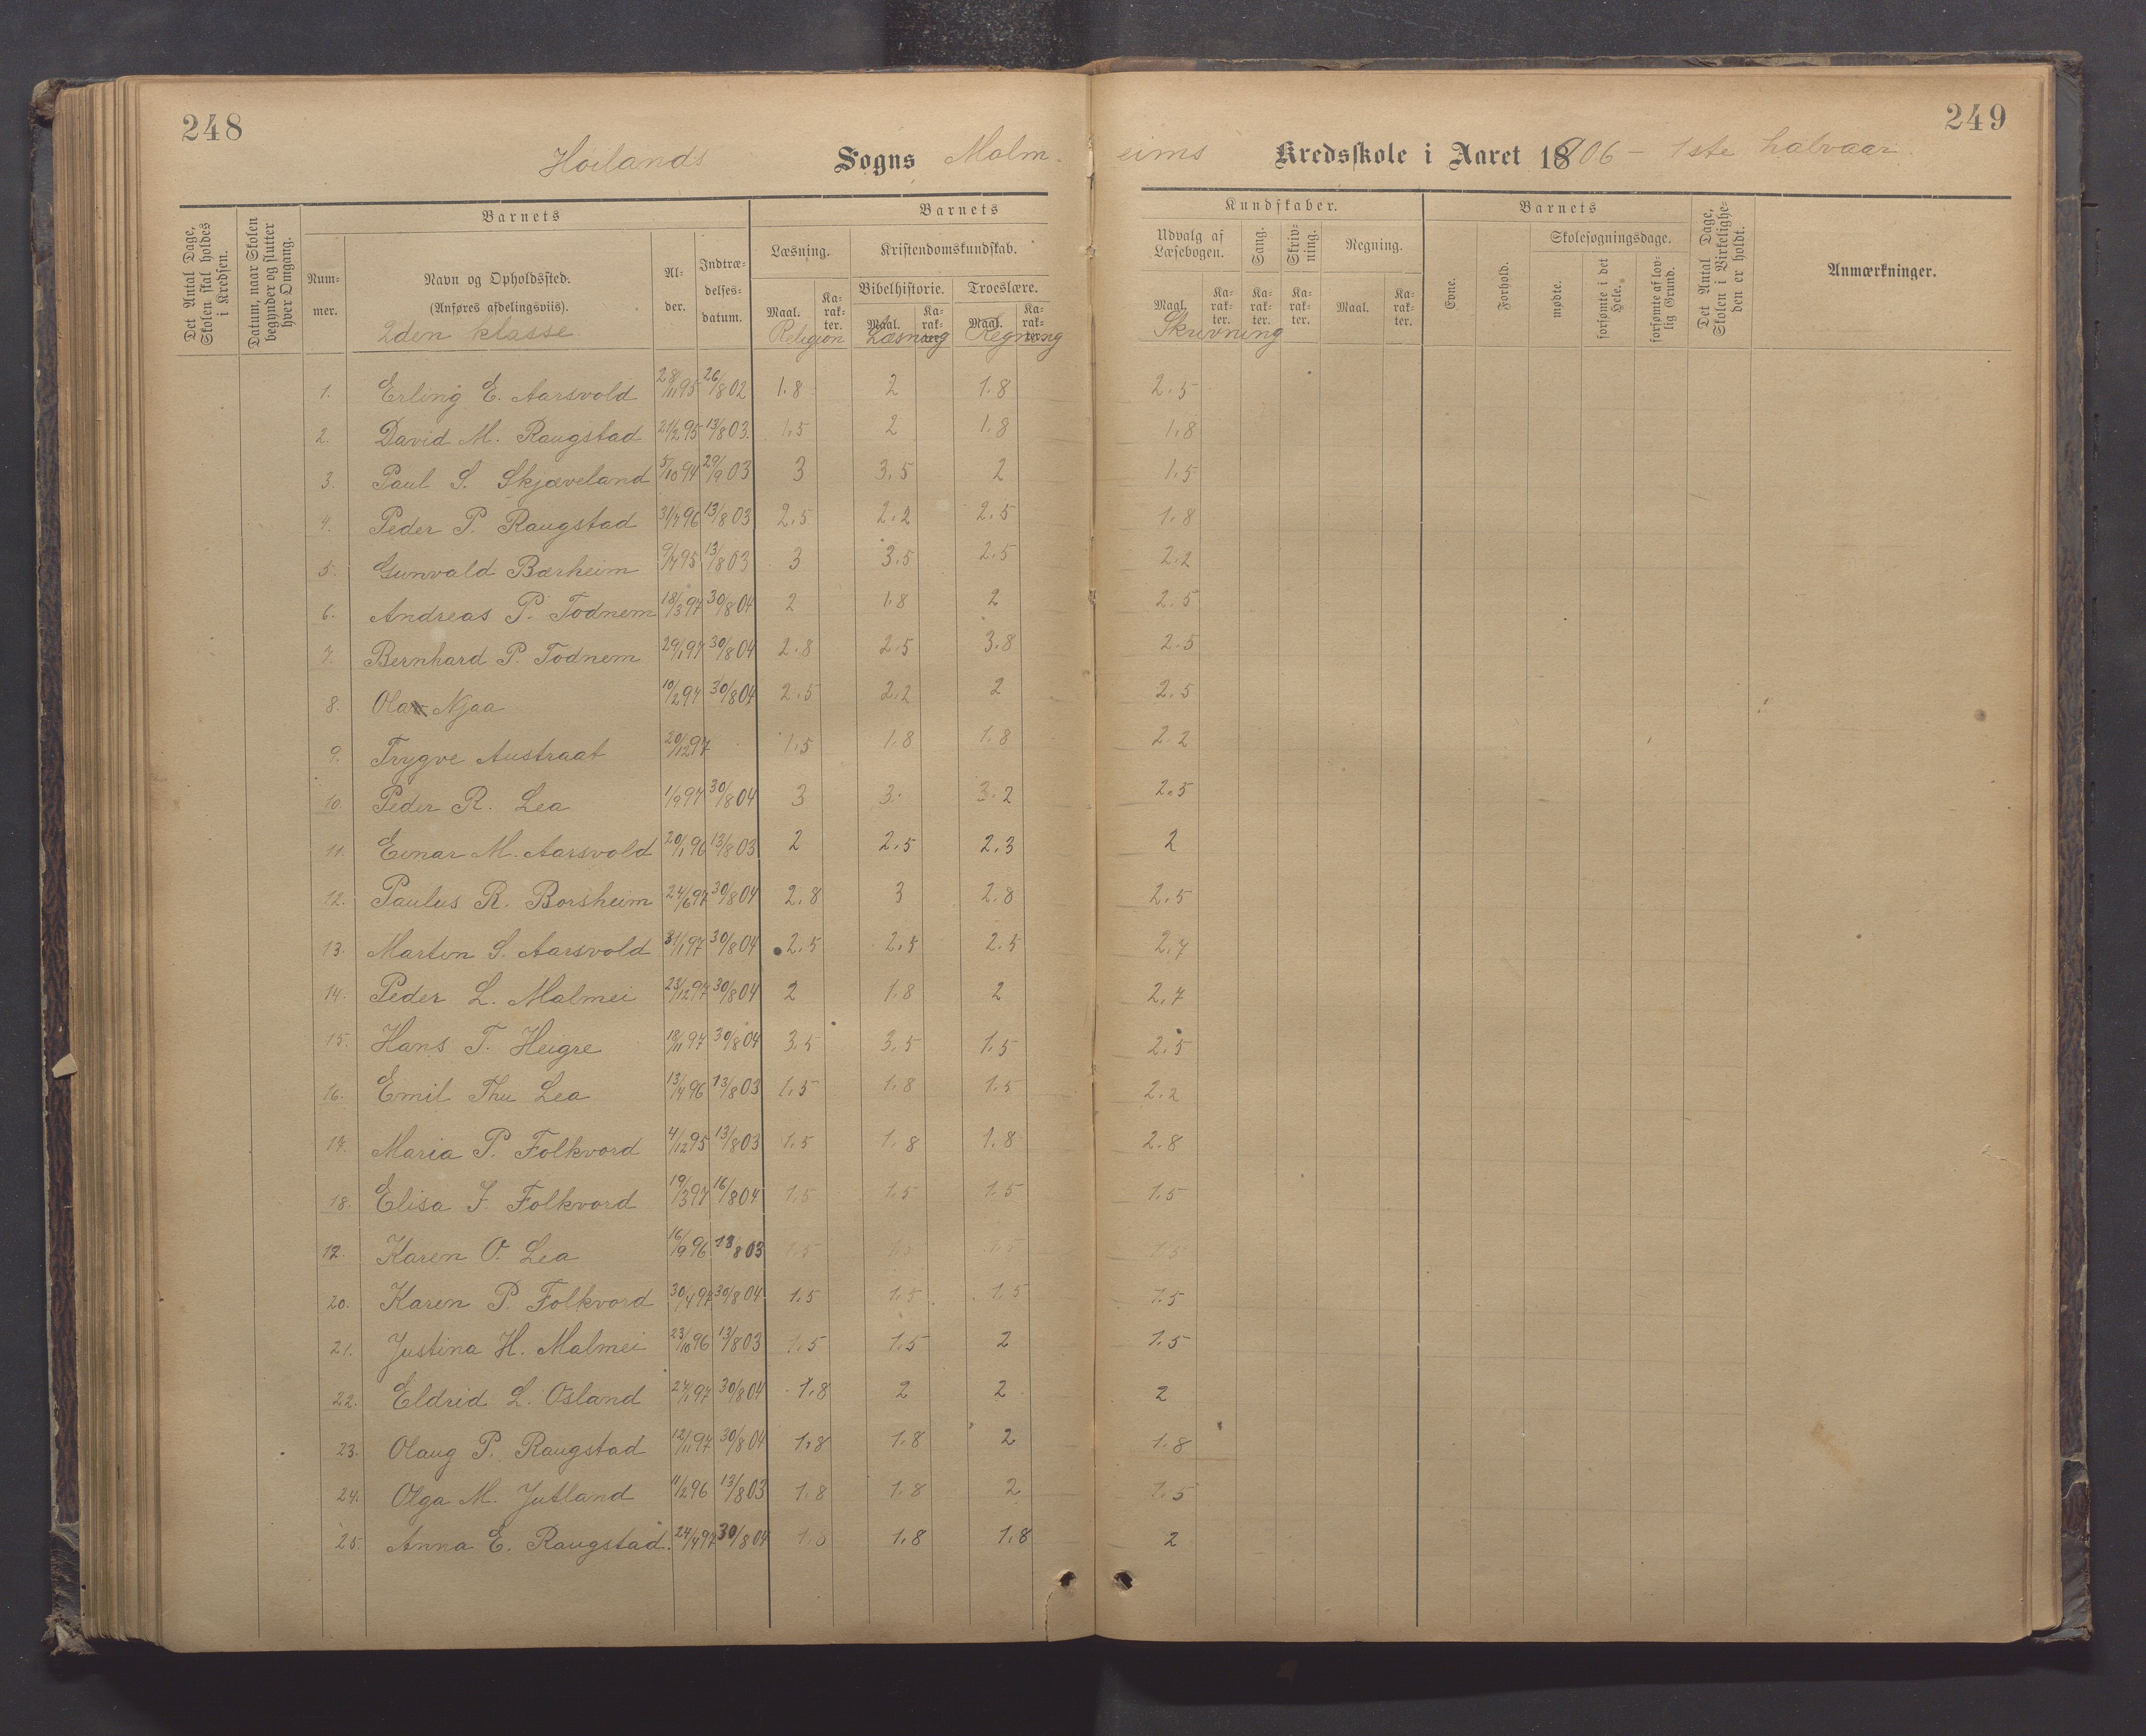 248
249
Hoilands Sogns Malm- eims Kredsskole i Aaret 18906 - 1ste halvaar.
Det Antal Dage, Skolen skal holdes i Kredsen.
Datum, naar Skolen begynder og slutter hver Omgang.
Barnets
Num-mer.
Navn og Opholdssted.
(Anføres afdelingsviis).
2den klasse
Al-der.
Indtræ-delses-datum.
Barnets Kundskaber.
Læsning.
Maal. Ka-rak-ter.
Religion
Kristendomskundskab.
Bibelhistorie.
Maal. Ka-rak-ter.
Læsning
Troeslære.
Maal. Ka-rak-ter.
Regning
Udvalg af Læsebogen.
Maal. Ka-rak-ter.
Skrivning
Sang.
Ka-rak-ter.
Skriv-ning.
Ka-rak-ter.
Regning.
Maal. Ka-rak-ter.
Barnets
Evne.
Forhold.
Skolesøgningsdage.
mødte.
forsømte i det Hele.
forsømte af lov-lig Grund.
Det Antal Dage, Skolen i Virkelighe-den er holdt.
Anmærkninger.
1. Erling E. Aarsvold 28/11 95 26/8 02 1.8 2 1.8 2.5
2. David M. Raugstad 21/2 95 13/8 03. 1.5 2 1.8 1.8
3. Paul S. Skjæveland 5/10 94 29/9 03 3 3.5 2 1.5
4. Peder P. Raugstad 31/7 96 13/8 03 2.5 2.2 2.5 1.8
5. Gunvald Bærheim 9/7 95 13/8 03 3 3.5 2.5 2.2
6. Andreas P. Todnem 18/3 97 30/8 04 2 1.8 2 2.5
7. Bernhard P. Todnem 29/1 97 30/8 04 2.8 2.5 3.8 2.5
8. Ola Njaa 10/2 97 30/8 04 2.5 2.2 2 2.5
9. Trygve Austraat 20/12 97 1.5 1.8 1.8 2.2
10. Peder R. Lea 1/9 97 30/8 04 3 3. 3.2 2.5
11. Einar M. Aarsvold 20/1 96 13/8 03 2 2.5 2.3 2
12. Paulus R. Borsheim 24/6 97 30/8 04 2.8 3 2.8 2.5
13. Martin S. Aarsvold 31/1 97 30/8 04 2.5 2.5 2.5 2.7
14. Peder L. Malmei 23/12 97 30/8 04 2 1.8 2 2.7
15. Hans T. Heigre 18/11 97 30/8 04 3.5 3.5 1.5 2.5
16. Emil Thu Lea 13/4 96 13/8 03 1.5 1.8 1.5 2.2
17. Maria P. Folkvord 4/12 95 13/8 03 1.5 1.8 1.8 2.8
18. Elisa J. Folkvord 19/3 97 16/8 04 1.5 1.5 1.5 1.5
19. Karen O. Lea 16/9 96 13/8 03 1.5 1.5 1.5 1.5
20. Karen P. Folkvord 30/4 97 30/8 04 1.5 1.5 1.5 1.5
21. Justina H. Malmei 23/10 96 13/8 03 1.5 1.5 2 1.5
22. Eldrid L. Osland 27/1 97 30/8 04 1.8 2 2 2
23. Olaug P. Raugstad 12/11 97 30/8 04 1.8 1.8 2 1.8
24. Olga M. Jutland 11/2 96 13/8 03 1.8 1.8 2 1.5
25. Anna E. Raugstad. 24/4 97 30/8 04 1.8 1.8 1.8 2